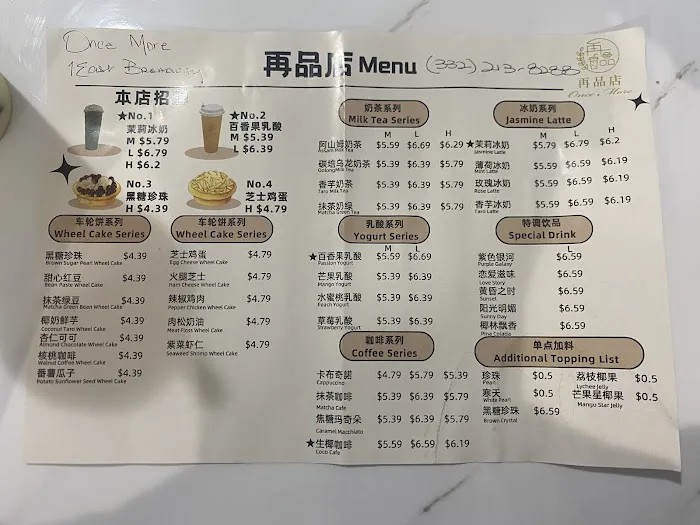 Once More
1 East Broadway
再品店 Menu (332) 213-8288
再品店
Once·More
本店招
★No.1
茉莉冰奶
M $5.79
L $6.79
H $6.2
★No.2
百香果乳酸
M $5.39
L $6.39
No.3
黑糖珍珠
H $4.39
No.4
芝士鸡蛋
H $4.79
车轮饼系列
Wheel Cake Series
黑糖珍珠 $4.39
Brown Sugar Pearl Wheel Cake
甜心红豆 $4.39
Bean Paste Wheel Cake
抹茶绿豆 $4.39
Matcha Green Bean Wheel Cake
椰奶鲜芋 $4.39
Coconut Taro Wheel Cake
杏仁可可 $4.39
Almond Chocolate Wheel Cake
核桃咖啡 $4.39
Walnut Coffee Wheel Cake
番薯瓜子 $4.39
Potato Sunflower Seed Wheel Cake
车轮饼系列
Wheel Cake Series
芝士鸡蛋 $4.79
Egg Cheese Wheel Cake
火腿芝士 $4.79
Ham Cheese Wheel Cake
辣椒鸡肉 $4.79
Pepper Chicken Wheel Cake
肉松奶油 $4.79
Meat Floss Wheel Cake
紫菜虾仁 $4.79
Seaweed Shrimp Wheel Cake
奶茶系列
Milk Tea Series
M L H
阿山姆奶茶 $5.59 $6.69 $6.29
Assam Milk Tea
碳培乌龙奶茶 $5.39 $6.39 $5.79
OolongMilk Tea
香芋奶茶 $5.39 $6.39 $5.79
Taro Milk Tea
抹茶奶绿 $5.39 $6.39 $5.79
Matcha Green Tea
乳酸系列
Yogurt Series
M L
★百香果乳酸 $5.59 $6.69
Passion Yogurt
芒果乳酸 $5.39 $6.39
Mango Yogurt
水蜜桃乳酸 $5.39 $6.39
Peach Yogurt
草莓乳酸 $5.39 $6.39
Strawberry Yogurt
咖啡系列
Coffee Series
卡布奇諾 $4.79 $5.79 $5.39
Cappuccino
抹茶咖啡 $5.39 $6.39 $5.79
Matcha Cafe
焦糖玛奇朵 $5.39 $6.39 $5.79
Caramel Macchiato
★生椰咖啡 $5.59 $6.59 $6.19
Coco Cafe
冰奶系列
Jasmine Latte
M L H
★茉莉冰奶 $5.79 $6.79 $6.2
Jasmine Latte
薄荷冰奶 $5.59 $6.59 $6.19
Mint Latte
玫瑰冰奶 $5.59 $6.59 $6.19
Rose Latte
香芋冰奶 $5.59 $6.59 $6.19
Taro Latte
特调饮品
Special Drink
L
紫色银河 $6.59
Purple Galaxy
恋爱滋味 $6.59
Love Story
黄昏之时 $6.59
Sunset
阳光明媚 $6.59
Sunny Day
椰林飘香 $6.59
Pina Colada
单点加料
Additional Topping List
珍珠 $0.5 荔枝椰果 $0.5
Pearl Lychee Jelly
寒天 $0.5 芒果星椰果 $0.5
White Pearl Mango Star Jelly
黑糖珍珠 $6.59
Brown Crystal